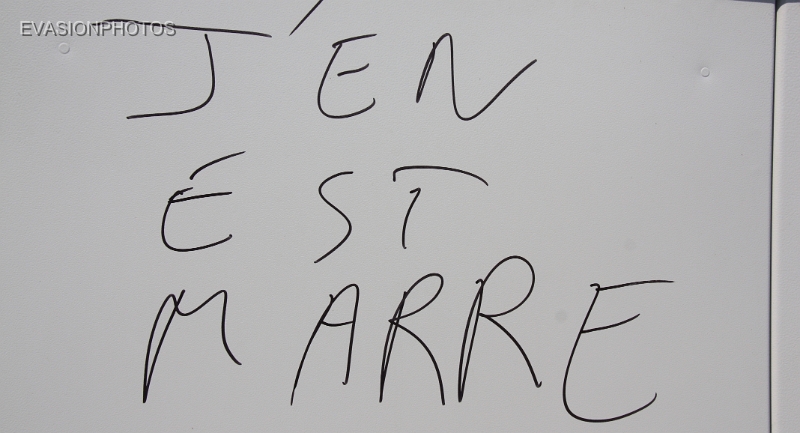 EVASIONPHOTOS
J'EN
EST
MARRE